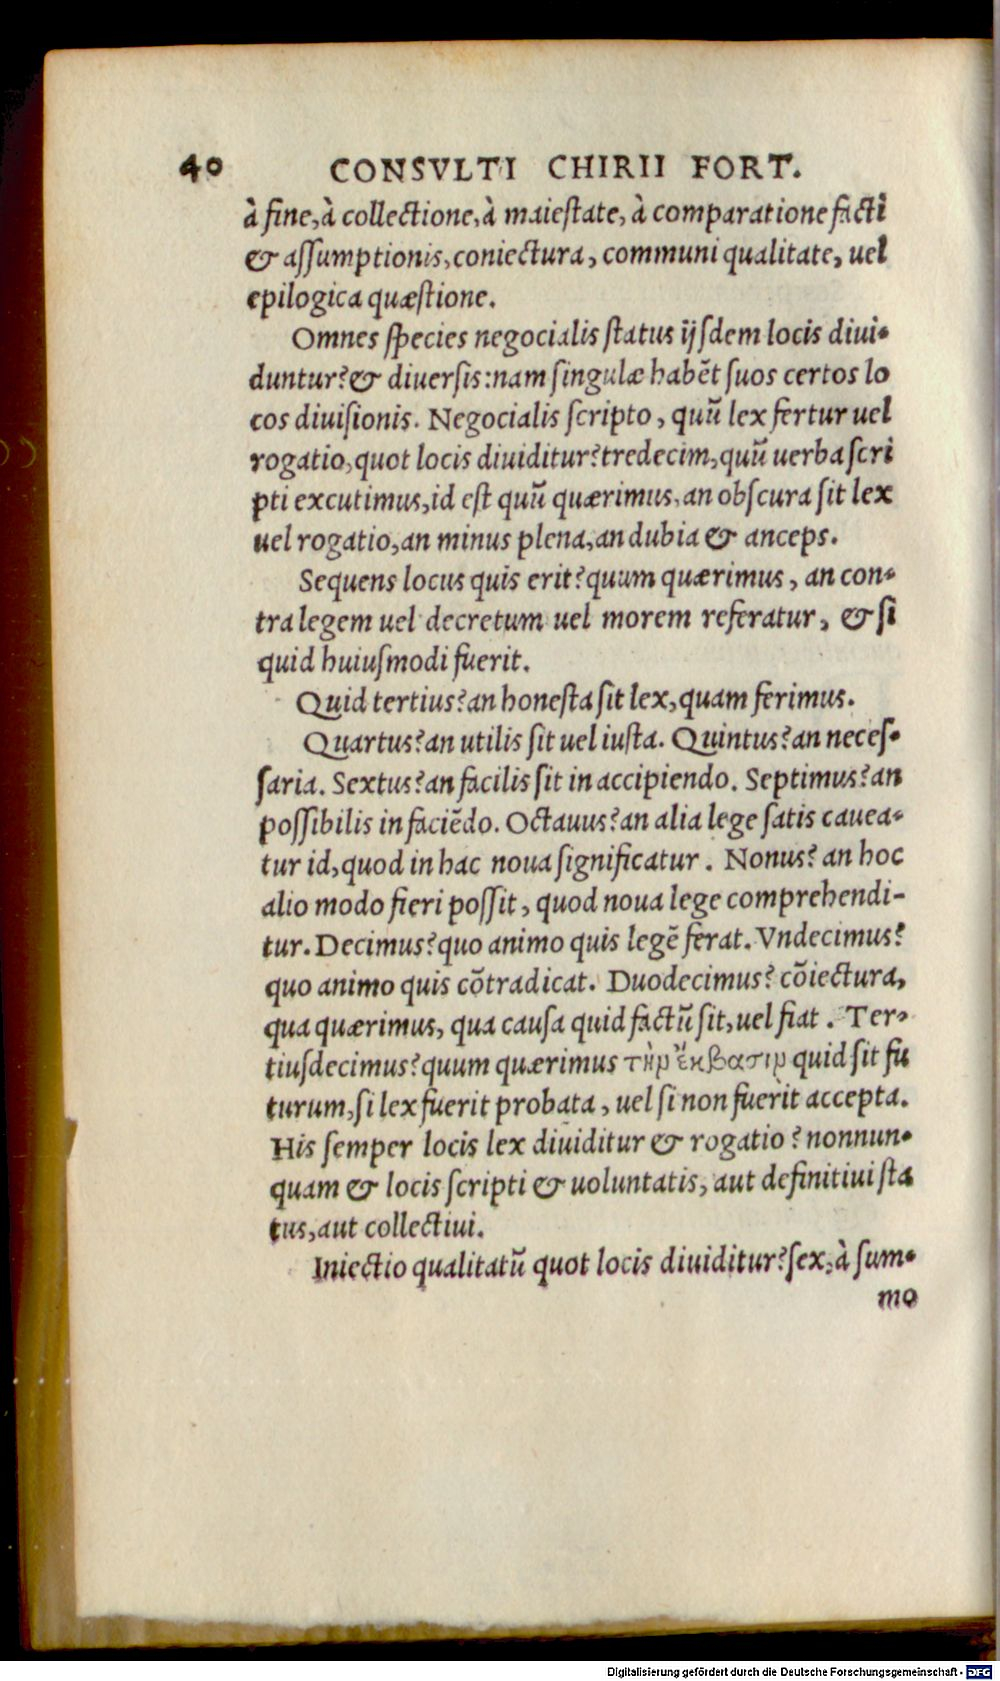 40 CONSVLTI CHIRII FORT.
à fine, à collectione, à maiestate, à comparatione facti
& assumptionis, coniectura, communi qualitate, uel
epilogica quæstione.
Omnes species negocialis status ijsdem locis diui-
duntur? & diuersis: nam singulæ habẽt suos certos lo
cos diuisionis. Negocialis scripto, quũ lex fertur uel
rogatio, quot locis diuiditur? tredecim, quũ uerba scri
pti excutimus, id est quũ quærimus, an obscura sit lex
uel rogatio, an minus plena, an dubia & anceps.
Sequens locus quis erit? quum quærimus, an con-
tra legem uel decretum uel morem referatur, & si
quid huiusmodi fuerit.
Quid tertius? an honesta sit lex, quam ferimus.
Quartus? an utilis sit uel iusta. Quintus? an neces-
saria. Sextus? an facilis sit in accipiendo. Septimus? an
possibilis in faciẽdo. Octauus? an alia lege satis cauea-
tur id, quod in hac noua significatur. Nonus? an hoc
alio modo fieri possit, quod noua lege comprehendi-
tur. Decimus? quo animo quis legẽ ferat. Vndecimus?
quo animo quis cõtradicat. Duodecimus? cõiectura,
qua quærimus, qua causa quid factũ sit, uel fiat. Ter-
tiusdecimus? quum quærimus τὴν ἔκβασιν quid sit fu
turum, si lex fuerit probata, uel si non fuerit accepta.
His semper locis lex diuiditur & rogatio? nonnun-
quam & locis scripti & uoluntatis, aut definitiui sta
tus, aut collectiui.
Iniectio qualitatũ quot locis diuiditur? sex, à sum-
mo
Digitalisierung gefördert durch die Deutsche Forschungsgemeinschaft - DFG